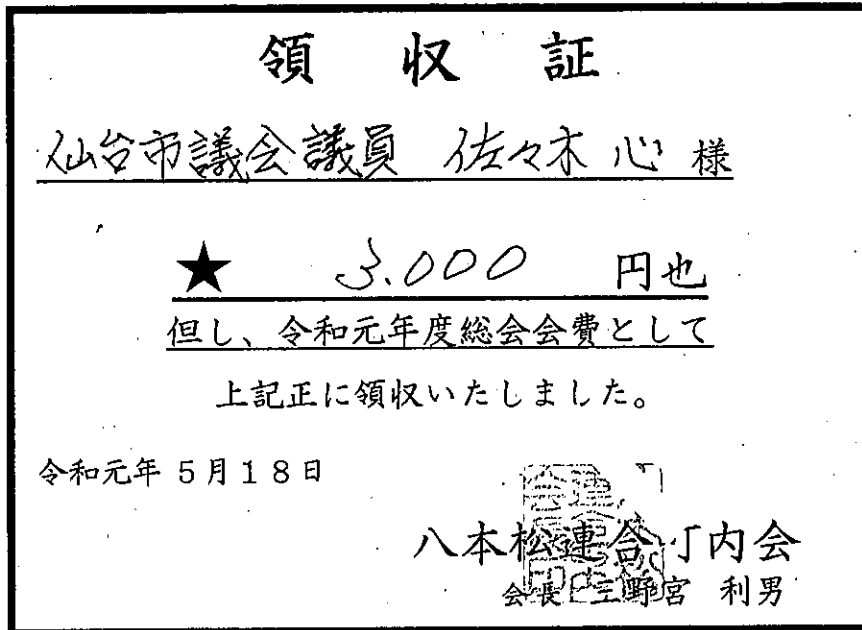 領収証
仙台市議会議員 佐々木 心 様
★ 3.000 円也
但し、令和元年度総会会費として
上記正に領収いたしました。
令和元年 5月18日
八本松連合町内会
会長 三野宮 利男